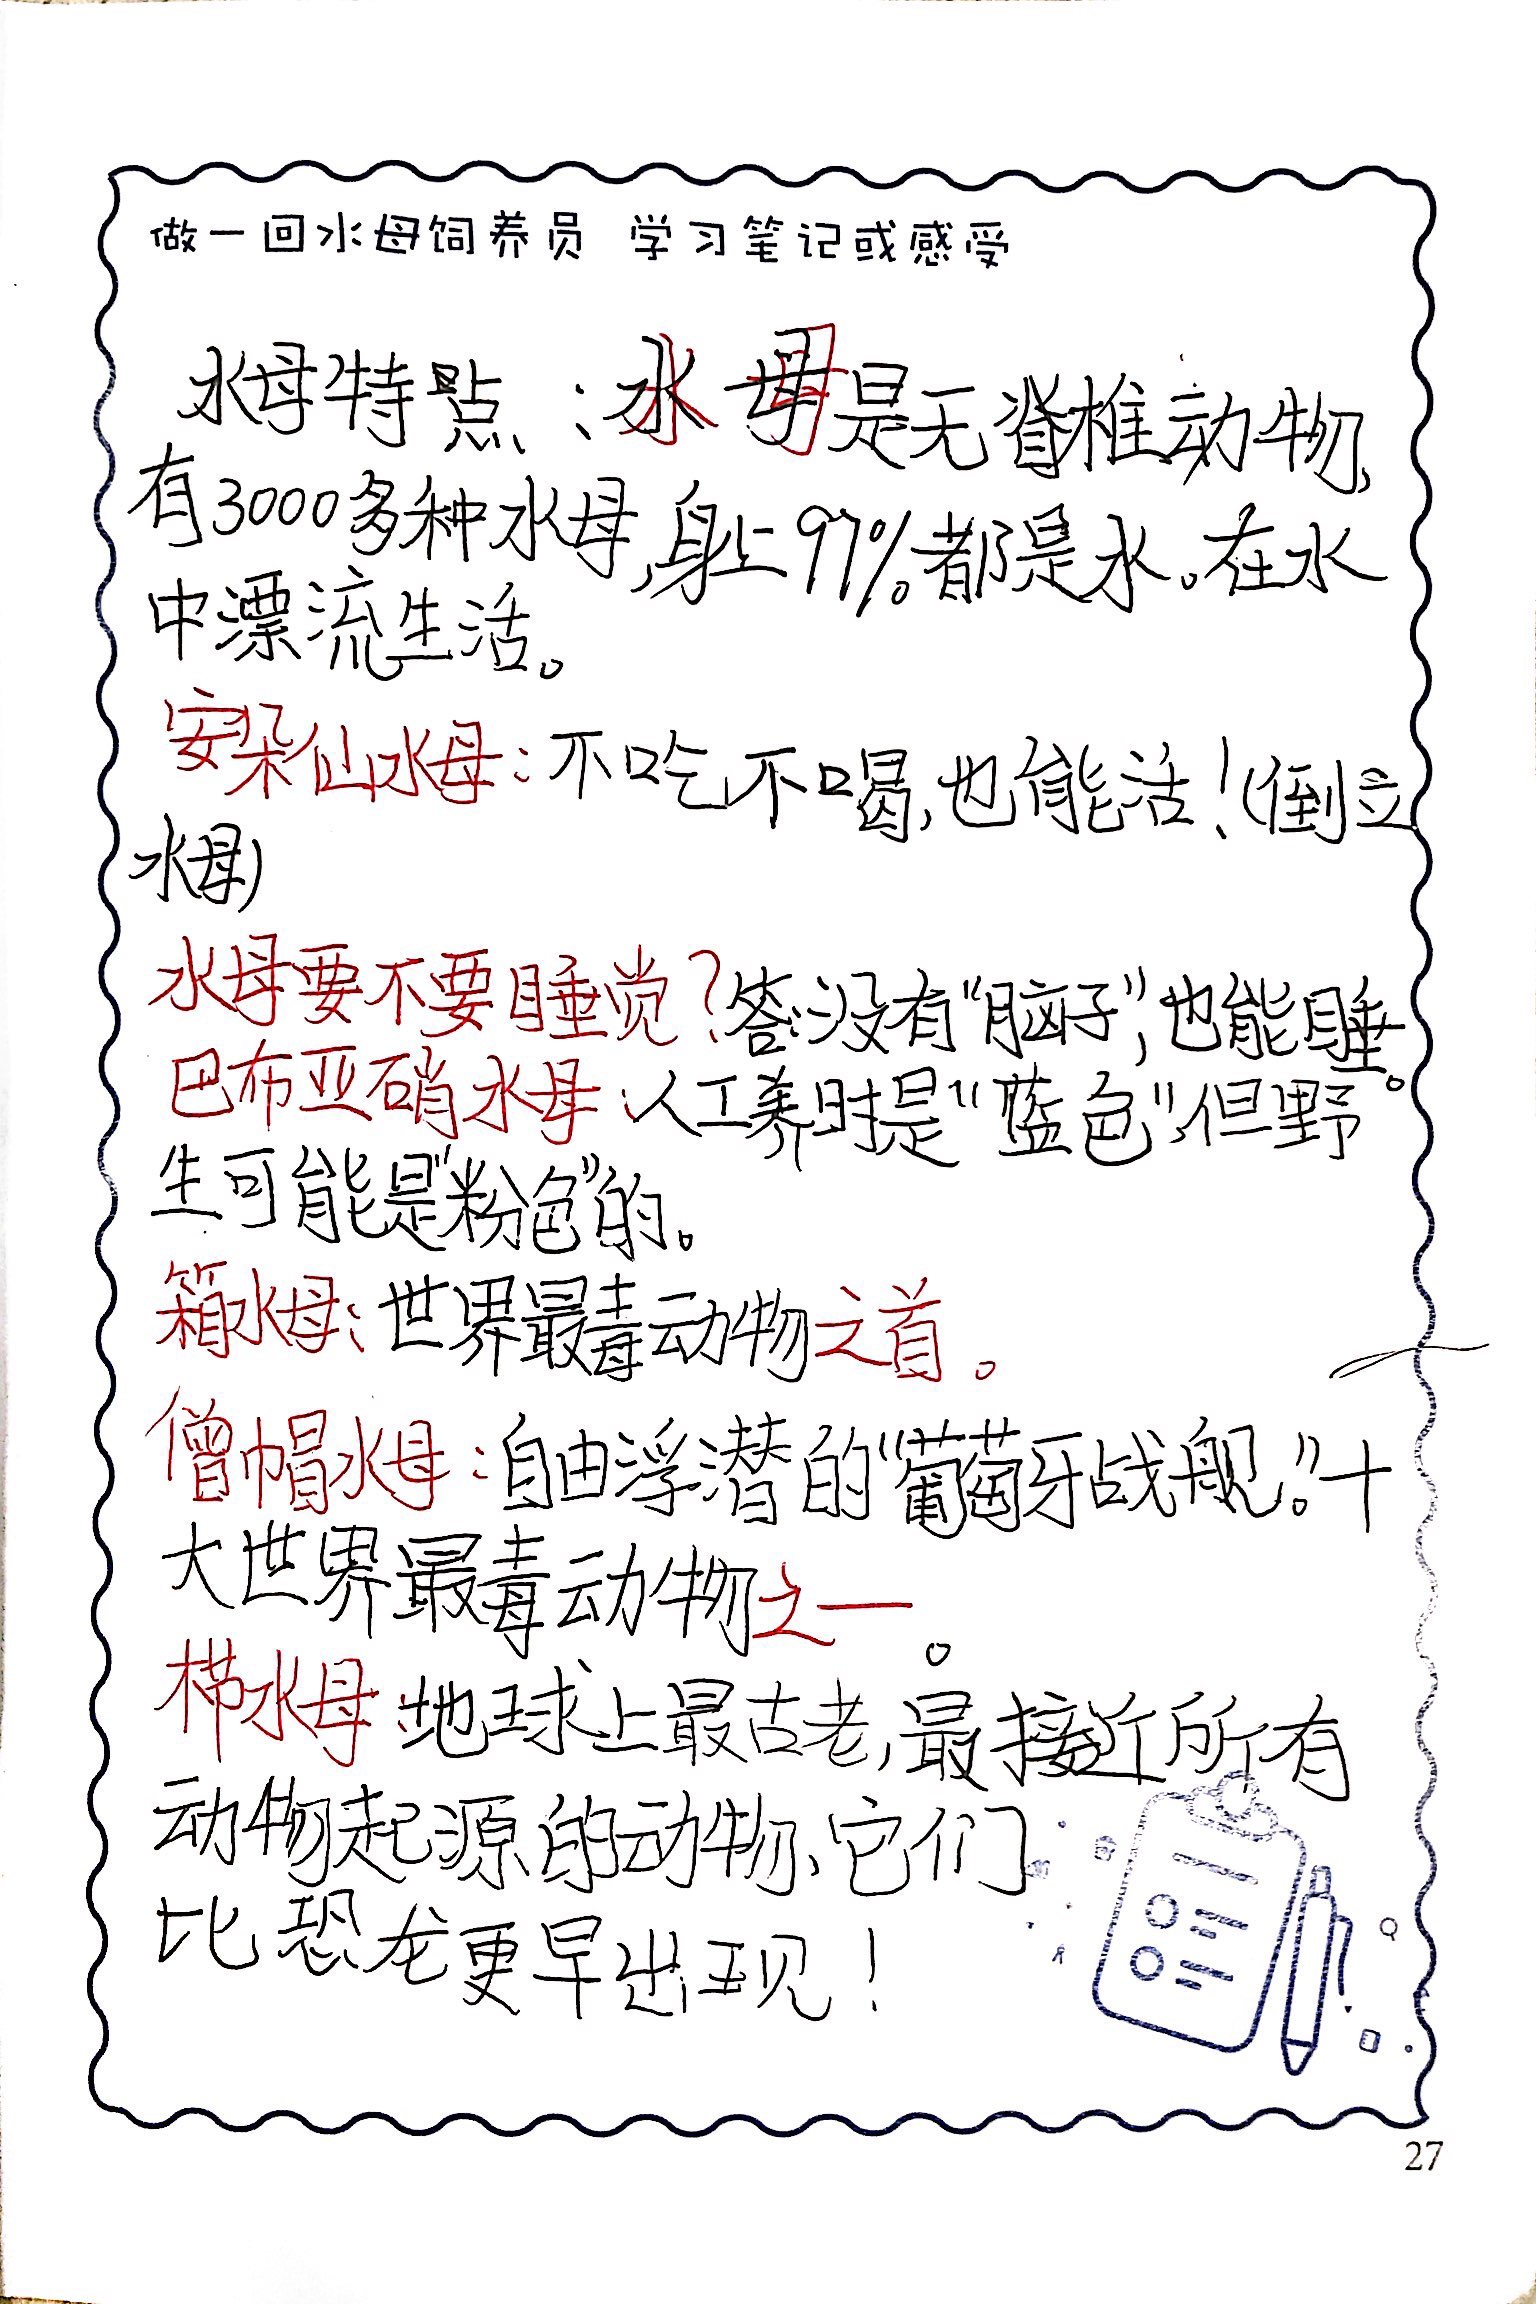 做一回水母饲养员 学习笔记或感受
水母特点：水母是无脊椎动物，
有3000多种水母，身上97%都是水。在水
中漂流生活。
安朵仙水母：不吃不喝，也能活！（倒立
水母）
水母要不要睡觉？答：没有“脑子”，也能睡。
巴布亚硝水母：人工养时是“蓝色”，但野
生可能是“粉色”的。
箱水母：世界最毒动物之首。
僧帽水母：自由浮潜的“葡萄牙战舰。”十
大世界最毒动物之一。
栉水母：地球上最古老，最接近所有
动物起源的动物、它们
比恐龙更早出现！
27